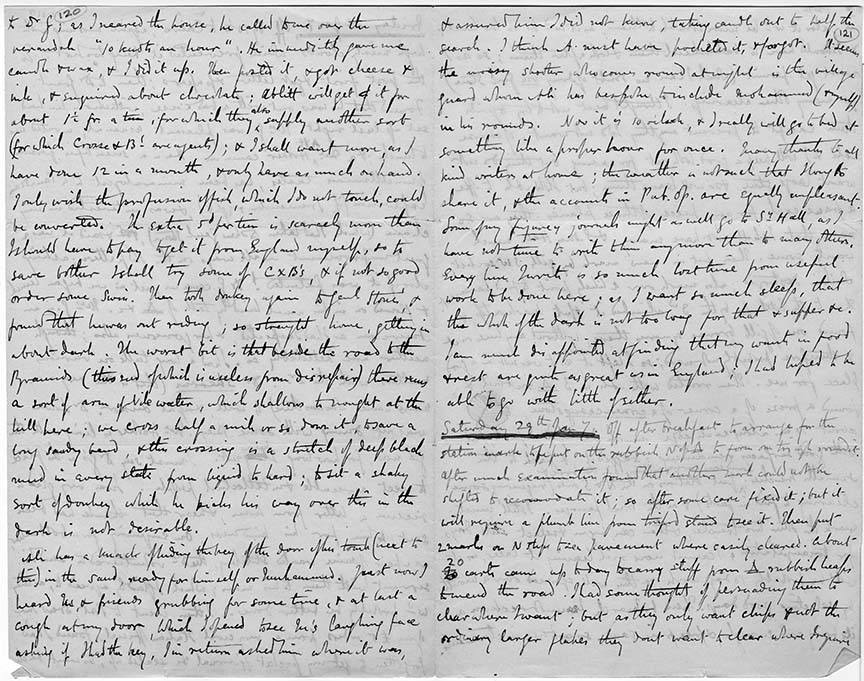 120
& Dr G; as I neared the house, he called to me over the
verandah "10 knots an hour". He immediately gave me
candle & wax, & I did it up. Then posted it, & got cheese &
ink, & enquired about chocolate; Ablitt will get it for
about 1/- for a tin, for which they also supply another sort
(for which Crosse & Bl. are agents); & I shall want more, as I
have done 12 in a month, & only have as much on hand.
I only wish the profusion of fish which I do not touch, could
be converted. The extra 5d per tin is scarcely more than
I should have to pay to get it from England myself, so to
save bother I shall try some of C & B's, & if not so good
order some down. Then took donkey again to Genl Stone's, &
found that he was out riding; so straight home, getting in
about dark. The worst bit is that beside the road to the
Pyramids (this end of which is useless from disrepair) there runs
a sort of arm of Nile water, which shallows to nought at the
hill here; we cross half a mile or so down it, to save a
long sandy bend, & this crossing is a stretch of deep black
mud in every state from liquid to hard; to sit a shaky
sort of donkey while he picks his way over this in the
dark is not desirable.
Ali has a knack of hiding the key of the door of his tomb (next to
this) in the sand, ready for himself or Muhammed. Just now I
heard him & friends grubbing for some time, & at last a
cough at my door, which I opened to see his laughing face
asking if I had the key, I in return asked him where it was,
121
& assured him I did not know, taking candle out to help the
search. I think A. must have pocketed it, & forgot. It seems
the noisy shouter who comes round at night is the village
guard whom Ali has bespoke to include Mohammed (& myself)
in his rounds. Now it is 10 o'clock, & I really will go to bed at
something like a proper hour for once. Many thanks to all
kind writers at home; the weather is not such that I long to
share it, & the accounts in Pub. Op. are equally unpleasant.
Some of my journals might as well go to St Hall as I
have not time to write to him any more than to many others.
Every line I write is so much lost time from useful
work to be done here; as I want so much sleep, that
the whole of the dark is not too long for that & supper &c.
I am much disappointed at finding that my wants in food
& rest are quite as great as in England; I had hoped to be
able to go with little of either.
Saturday 29th Jany. Off after breakfast to arrange for the
station mark to be put on the rubbish N of
After much examination found that another mark could not be
shifted to accommodate it; so after some care fixed it; but it
will require a plumb line from tripod stand to see it. Then put
2 marks on N tips to see pavement where easily cleared. About
20 carts came up today to carry stuff from △ rubbish heaps
to mend the road. I had some thought of persuading them to
clear where I want; but as they only want chips & not the
ordinary larger flakes they don't want to clear where I